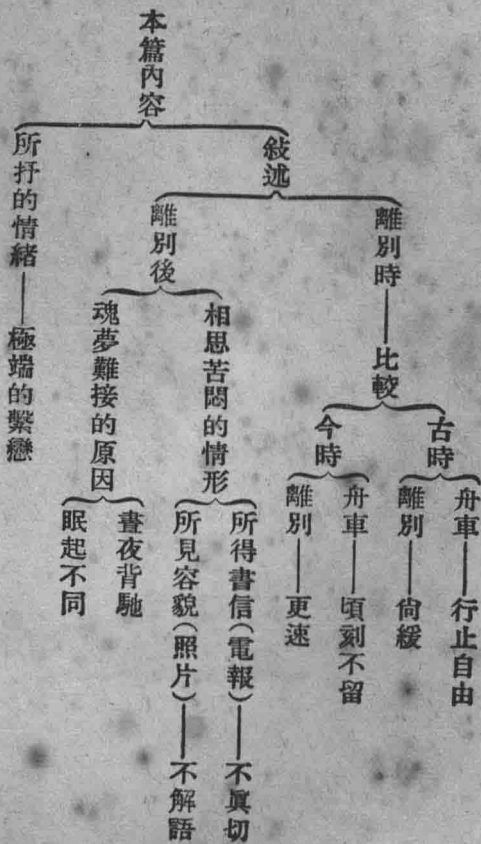 本篇內容
敍述
離別時——比較
古時
舟車——行止自由
離別——尙緩
今時
舟車——頃刻不留
離別——更速
離別後
相思苦悶的情形
所得書信(電報)——不眞切
所見容貌(照片)——不解語
魂夢難接的原因
晝夜背馳
眠起不同
所抒的情緒——極端的繫戀